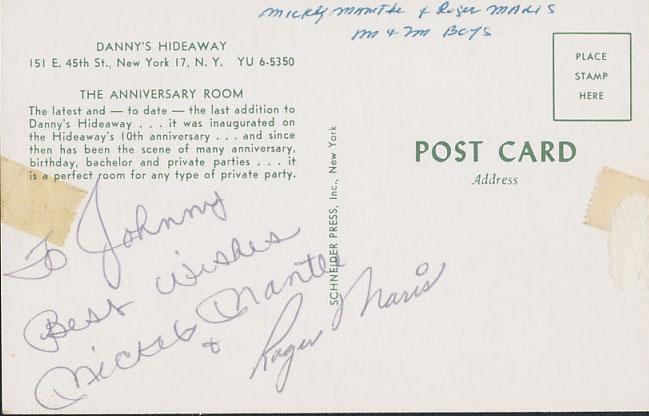 Mickey Mantle & Roger Maris
M & M Boys
DANNY'S HIDEAWAY
151 E. 45th St., New York 17, N. Y. YU 6-5350
THE ANNIVERSARY ROOM
The latest and — to date — the last addition to
Danny's Hideaway . . . it was inaugurated on
the Hideaway's 10th anniversary . . . and since
then has been the scene of many anniversary,
birthday, bachelor and private parties . . . it
is a perfect room for any type of private party.
SCHNEIDER PRESS, Inc., New York
PLACE
STAMP
HERE
POST CARD
Address
To Johnny
Best Wishes
Mickey Mantle
&
Roger Maris